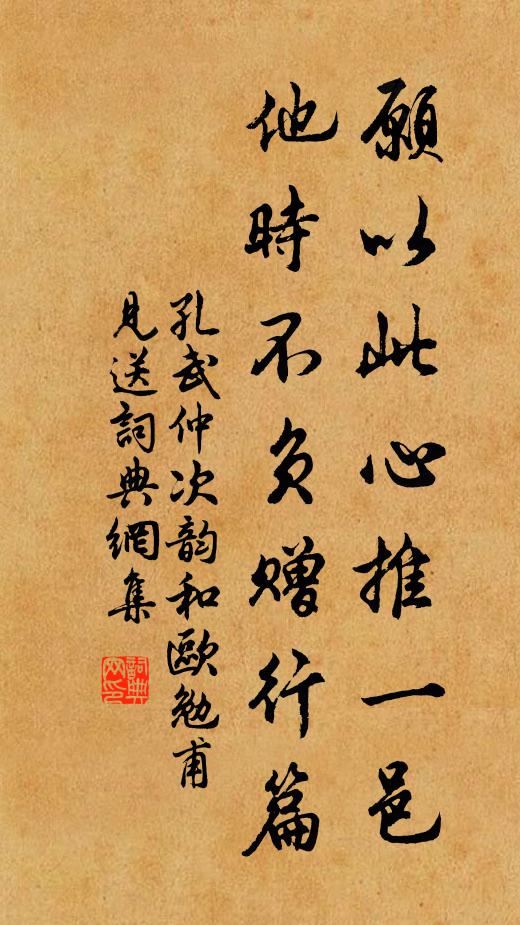 願以此心推一邑
他時不負贈行篇
孔武仲次韵和歐勉甫
見送詞典網集
詞典
网印